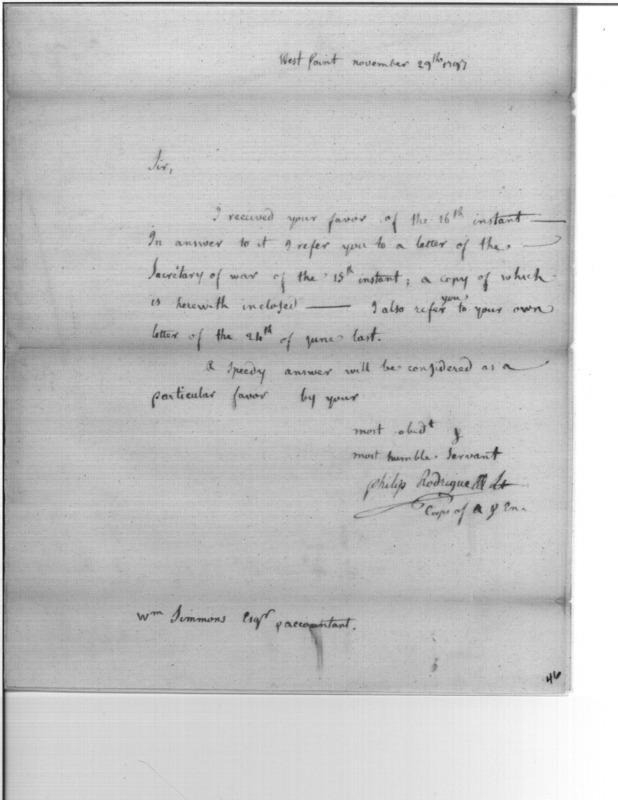 West Point november 29th 1797
Sir,
I received your favor of the 26th instant —
In answer to it I refer you to a letter of the —
Secretary of war of the 15th instant; a copy of which
is herewith inclosed — I also refer you to your own
letter of the 24th of june last.
A speedy answer will be considered as a
particular favor by your
most obedt &
most humble Servant
philip Rodrigue Lt
Corps of A & En.
Wm Simmons Esqr accountant.
46